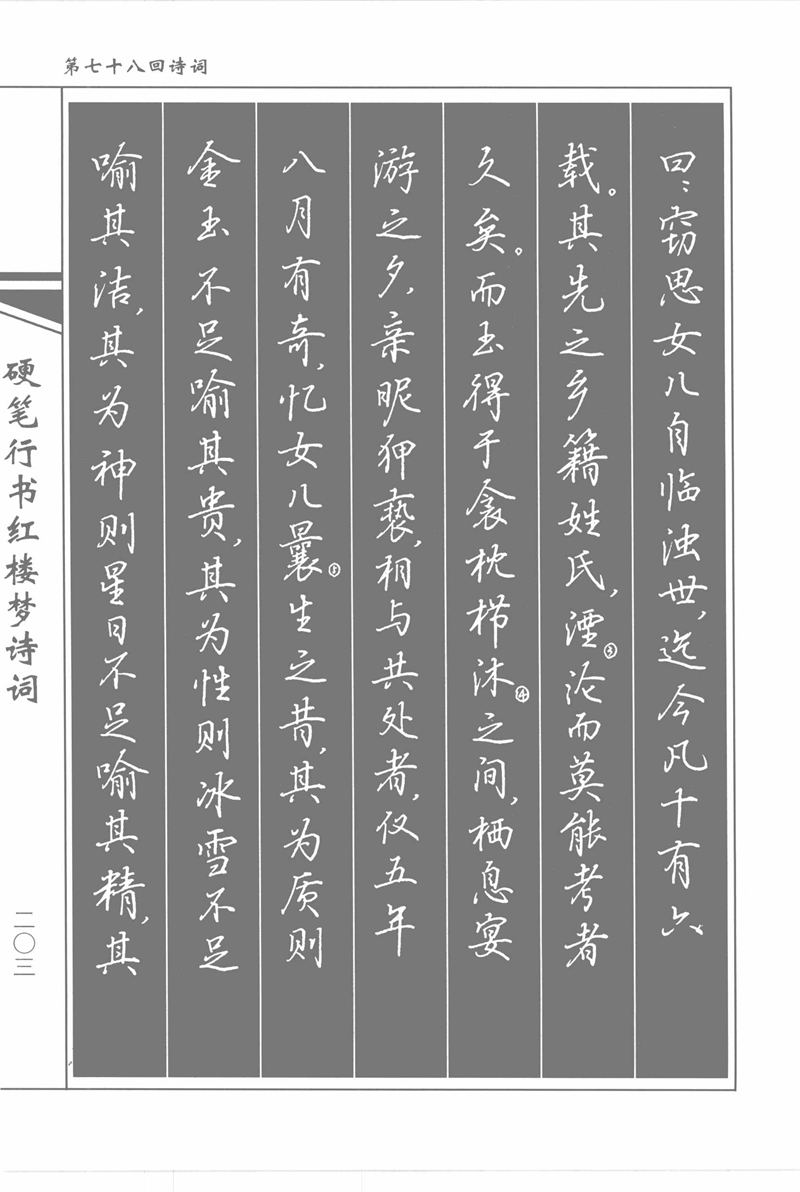 第七十八回诗词
曰：窃思女儿自临浊世，迄今凡十有六
载。其先之乡籍姓氏，湮③沦而莫能考者
久矣。而玉得于衾枕栉沐④之间，栖息宴
游之夕，亲昵狎亵，相与共处者，仅五年
八月有奇，忆女儿曩⑤生之昔，其为质则
金玉不足喻其贵，其为性则冰雪不足
喻其洁，其为神则星日不足喻其精，其
硬笔行书红楼梦诗词
二〇三